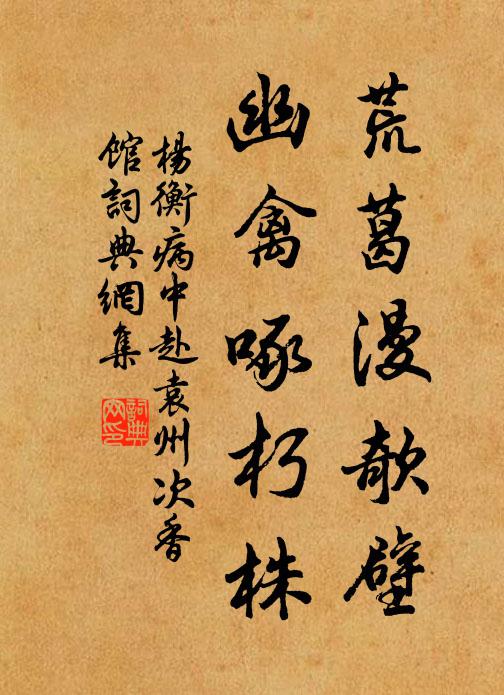 荒葛漫欹壁
幽禽啄朽株
楊衡病中赴袁州次香
館詞典網集
詞典網印